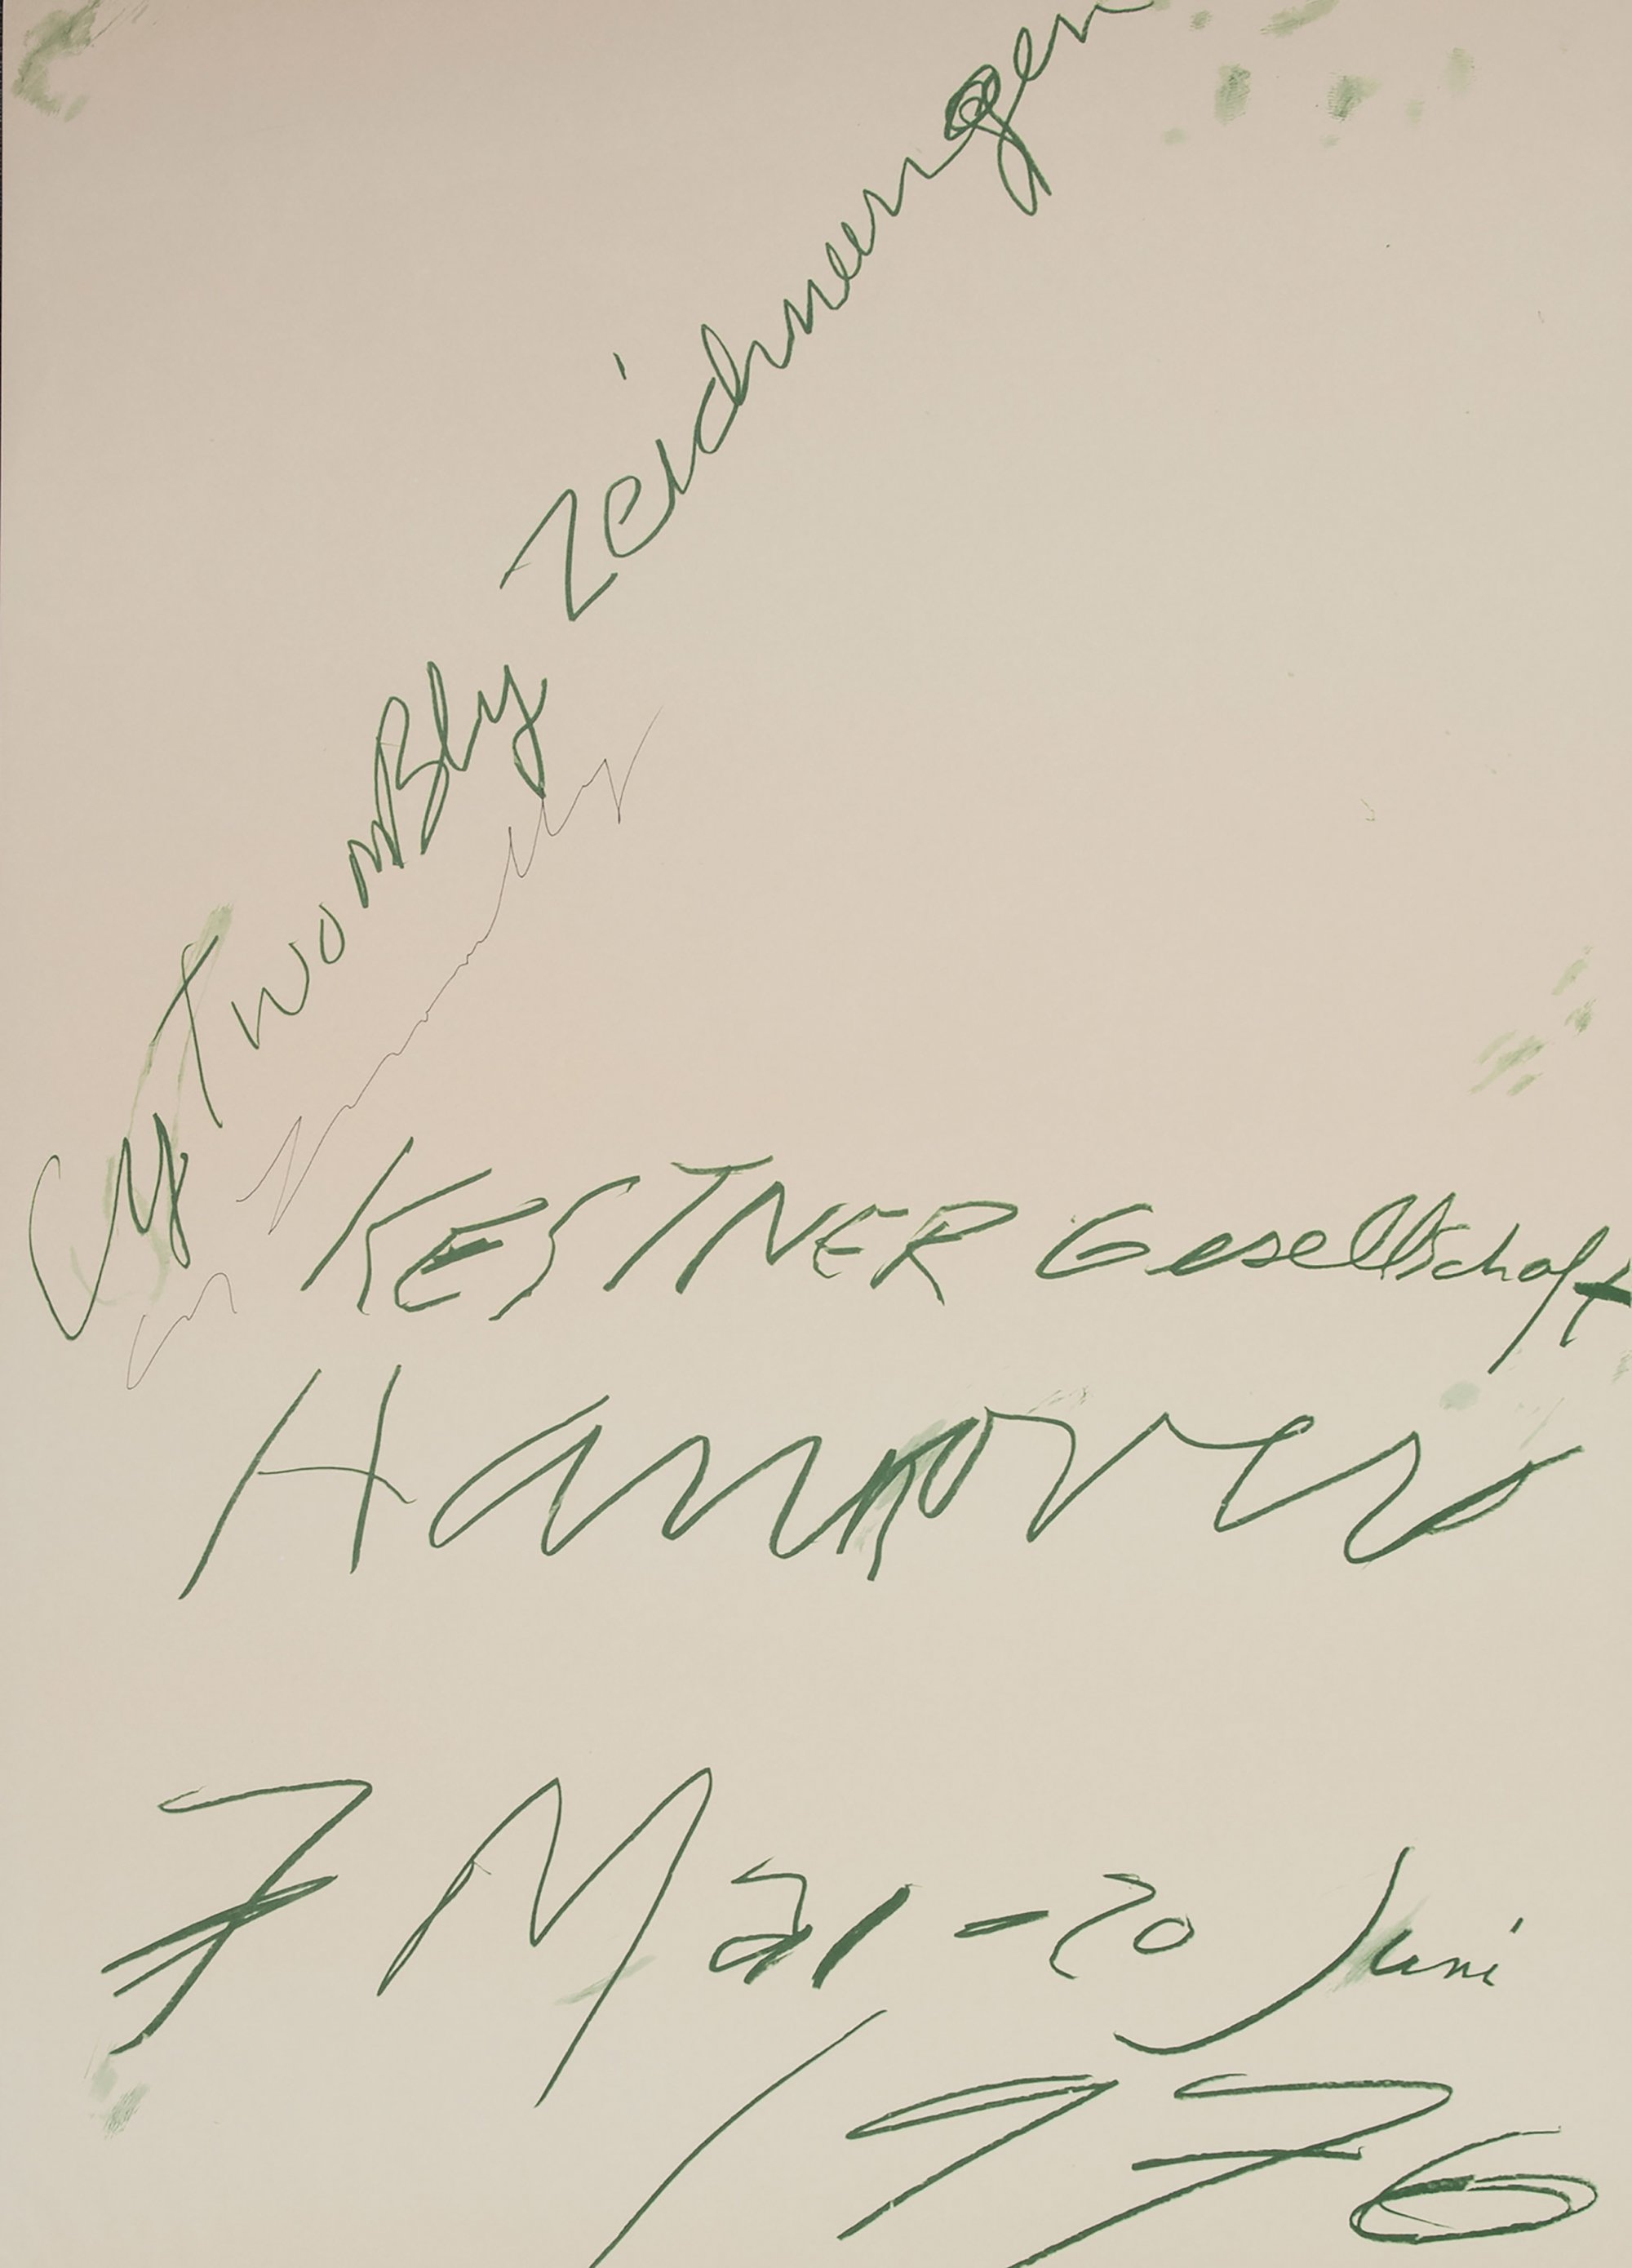 Cy TwomBly Zeichnungen
KESTNER Gesellschaft
Hannover
7 Mai - 20 Juni
1976